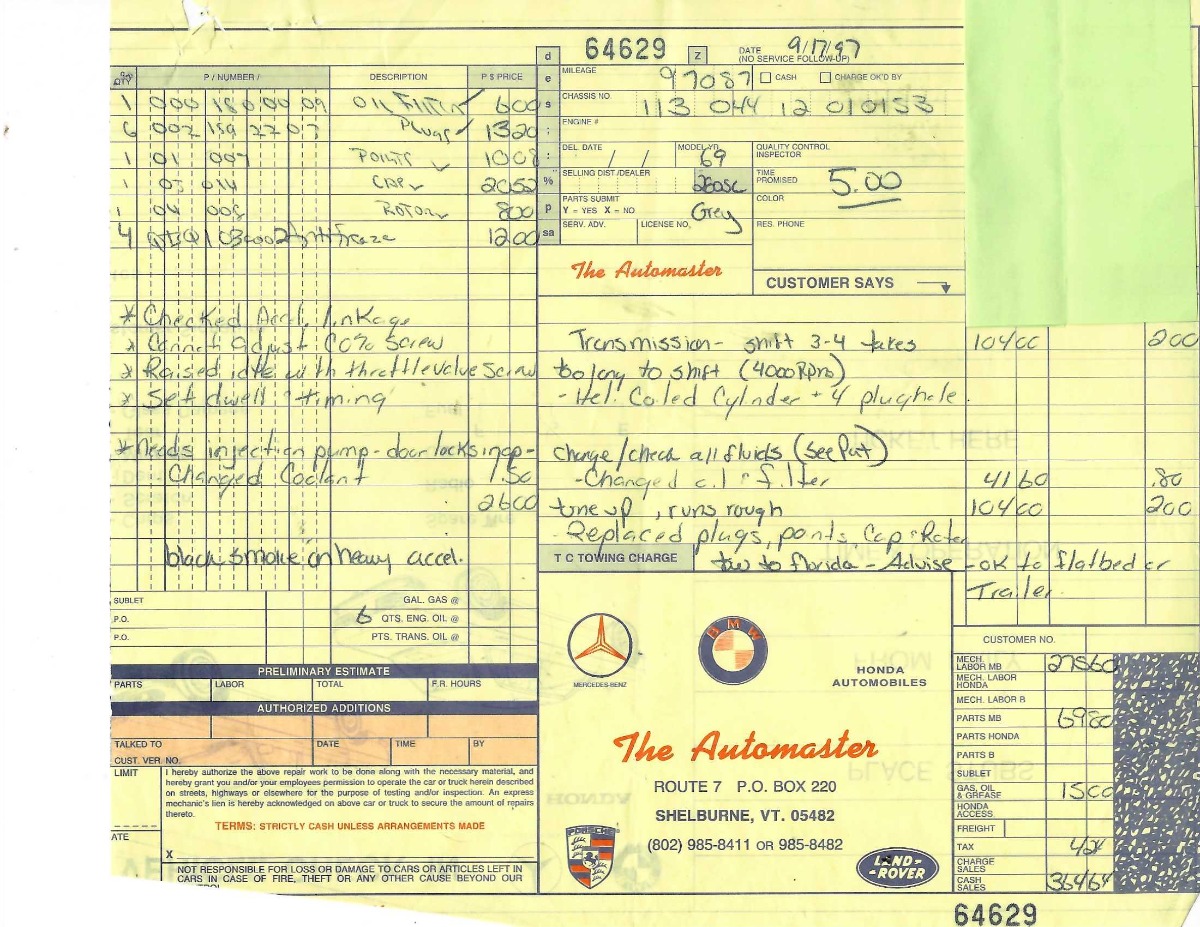 64629
d
z
DATE 9/17/97
(NO SERVICE FOLLOW-UP)
QTY P / NUMBER / DESCRIPTION P $ PRICE
1 000 180 00 09 OIL Filter 600
6 002 159 22 07 Plugs 1320
1 01 009 POINTS 1008
1 03 014 CAP 2052
1 04 008 ROTOR 800
4 Antifreeze 1200
e
s
:
:
%
p
sa
MILEAGE 97087 CASH CHARGE OK'D BY
CHASSIS NO. 113 044 12 010153
ENGINE #
DEL. DATE / / MODEL YR. 69 QUALITY CONTROL INSPECTOR
SELLING DIST /DEALER 280SL TIME PROMISED 5.00
PARTS SUBMIT
Y = YES X = NO Grey COLOR
SERV. ADV. LICENSE NO. RES. PHONE
The Automaster
CUSTOMER SAYS
* Checked Accl. linkage
* Cannot adjust CO% Screw
* Raised idle with throttle valve screw
* Set dwell + timing
*Needs injection pump - door locks inop -
- Changed Coolant 1.50
2600
black smoke on heavy accel.
Transmission - shift 3-4 takes 10400 200
too long to shift (4000 RPM)
- Hel. Coiled Cylinder + 4 plughole
change/check all fluids (See Pat)
- Changed oil + filter 4160 .80
tune up, runs rough 10400 200
- Replaced plugs, points, Cap + Rotor
T C TOWING CHARGE
tow to florida - Advise - OK to flatbed or
Trailer
SUBLET GAL. GAS @
P.O. 6 QTS. ENG. OIL @
P.O. PTS. TRANS. OIL @
PRELIMINARY ESTIMATE
PARTS LABOR TOTAL F.R. HOURS
AUTHORIZED ADDITIONS
TALKED TO DATE TIME BY
CUST. VER. NO.
LIMIT
ATE
I hereby authorize the above repair work to be done along with the necessary material, and
hereby grant you and/or your employees permission to operate the car or truck herein described
on streets, highways or elsewhere for the purpose of testing and/or inspection. An express
mechanic's lien is hereby acknowledged on above car or truck to secure the amount of repairs
thereto.
TERMS: STRICTLY CASH UNLESS ARRANGEMENTS MADE
X
NOT RESPONSIBLE FOR LOSS OR DAMAGE TO CARS OR ARTICLES LEFT IN
CARS IN CASE OF FIRE, THEFT OR ANY OTHER CAUSE BEYOND OUR
MERCEDES-BENZ
BMW
HONDA
AUTOMOBILES
The Automaster
ROUTE 7 P.O. BOX 220
SHELBURNE, VT. 05482
(802) 985-8411 OR 985-8482
PORSCHE
LAND-
-ROVER
CUSTOMER NO.
MECH. LABOR MB 27560
MECH. LABOR HONDA
MECH. LABOR B
PARTS MB 6980
PARTS HONDA
PARTS B
SUBLET
GAS, OIL & GREASE 1500
HONDA ACCESS.
FREIGHT
TAX 424
CHARGE SALES
CASH SALES 36464
64629